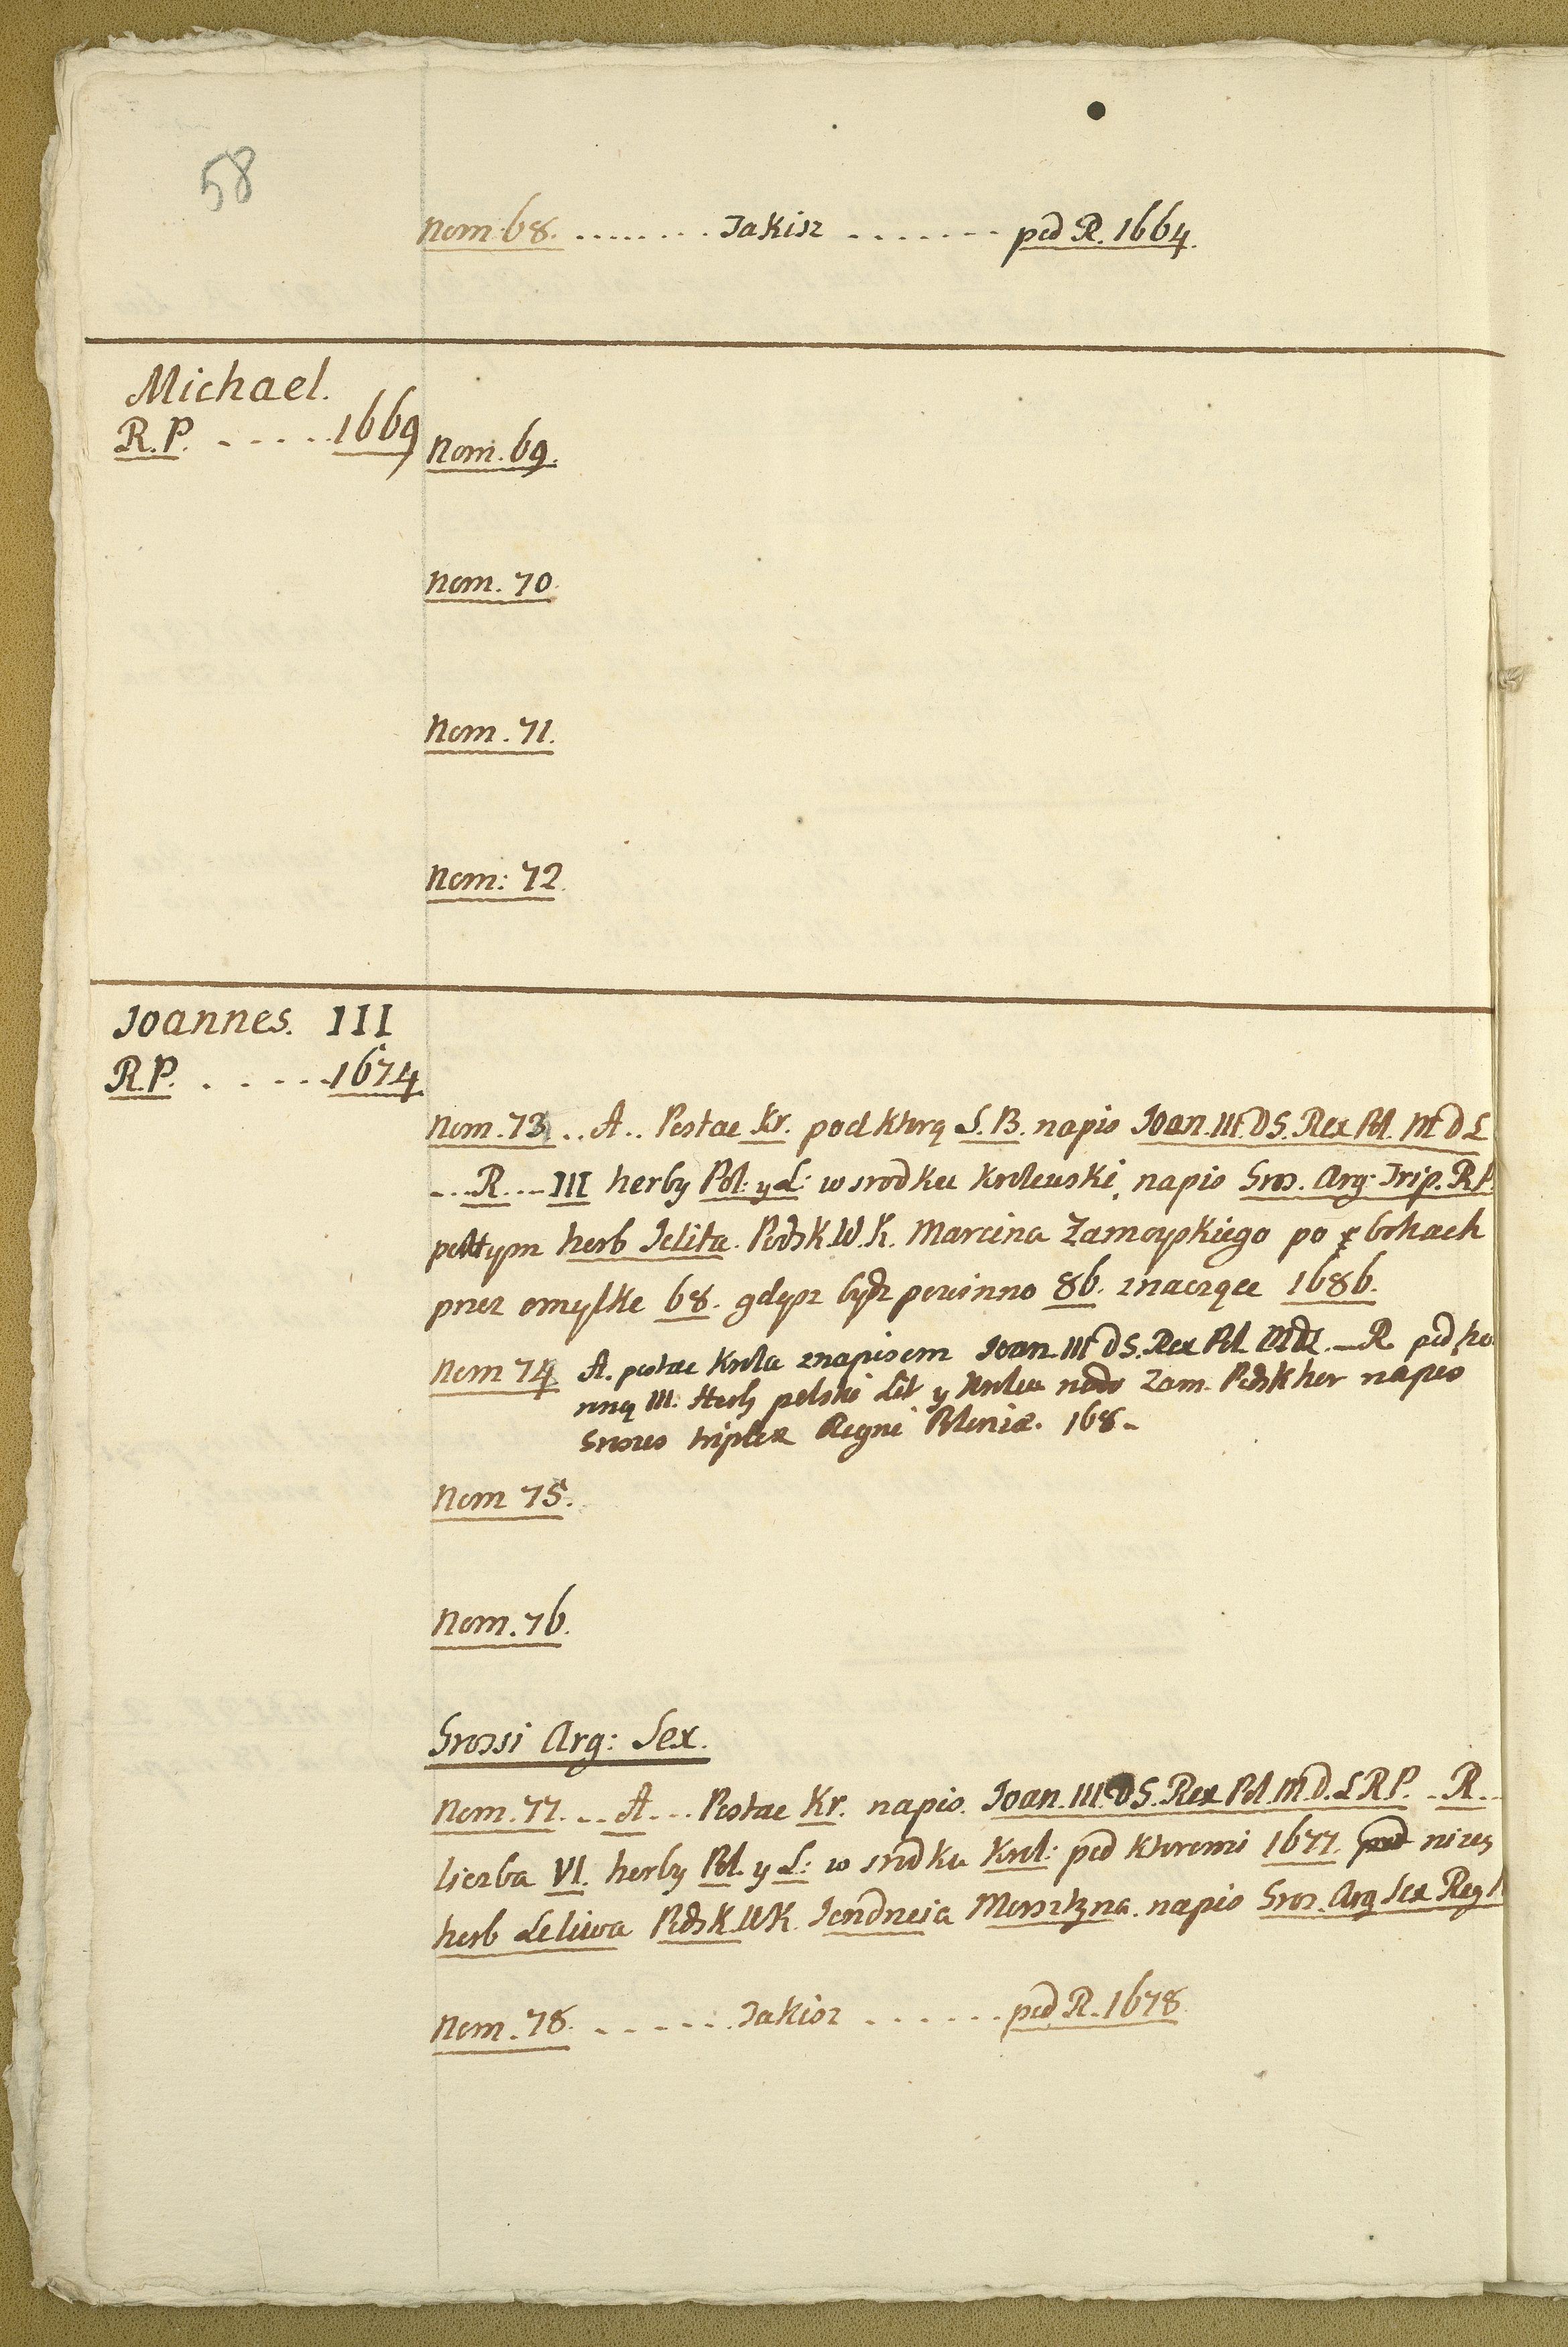 58
Nom. 68. ........ Jakisz ....... pod R. 1664.
Michael.
R.P. ..... 1669
Nom. 69.
Nom. 70.
Nom. 71.
Nom: 72.
Joannes. III
R.P. ..... 1674
Nom. 73. .. A .. Postac Kr. pod Ktorą S.B. napis Joan. III. D S. Rex Pol. M D L
... R ... III herby Pol: y L: w srodku Krolewski, napis Gros. Arg. Trip. R P.
pod tym herb Jelita. Podsk. W. K. Marcina Zamoyskiego po bokach
przez omyłke 68. gdysz bydz powinno 86. znaczące 1686.
Nom 74 A. postac Krola znapisem Joan. III D S. Rex Pol. M D L. — R pod ko
roną III. Herb polski Lit y Krolew Zam. Podsk her napis
Grossus triplex Regni Poloniæ. 168-
Nom 75.
Nom. 76.
Grossi Arg: Sex.
Nom. 77. .. A ... Postac Kr. napis. Joan. III. D S. Rex Pol. M D. L R P. .. R ..
liczba VI. herby Pol. y L: w srodku Krol: pod Ktoremi 1677. nizey
herb Leliwa Podsk. W K. Jendrzeia Morsztyna. napis Gros. Arg Sex Reg
Nom. 78. ...... Jakisz ...... pod R. 1678